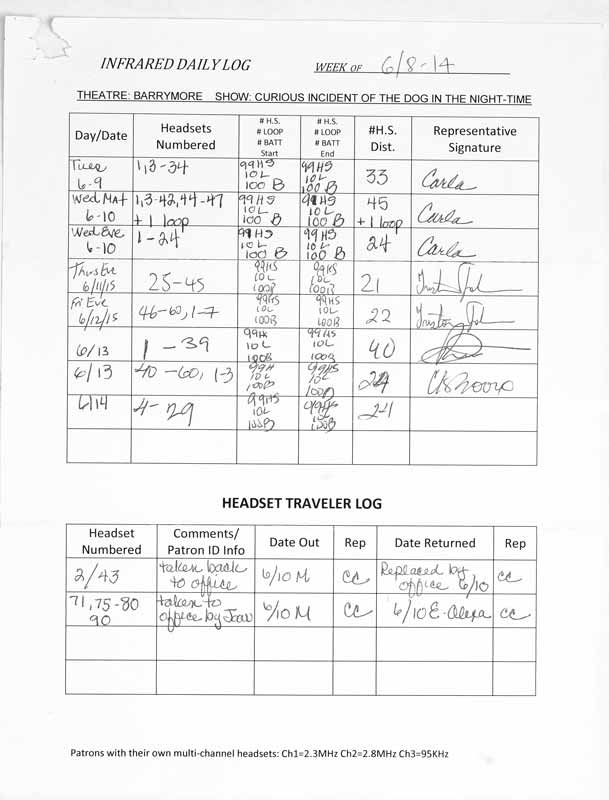 INFRARED DAILY LOG WEEK OF 6/8-14
THEATRE: BARRYMORE SHOW: CURIOUS INCIDENT OF THE DOG IN THE NIGHT-TIME
Day/Date Headsets Numbered # H.S. # LOOP # BATT Start # H.S. # LOOP # BATT End #H.S. Dist. Representative Signature
Tues 6-9 1,3-34 99HS 10L 100 B 99HS 10L 100 B 33 Carla
Wed Mat 6-10 1,3-42,44-47 + 1 loop 99HS 10L 100 B 99HS 10L 100 B 45 + 1 loop Carla
Wed Eve 6-10 1-24 99HS 10L 100 B 99HS 10L 100 B 24 Carla
Thurs Eve 6/11/15 25-45 99HS 10L 100B 99HS 10L 100B 21
Fri Eve 6/12/15 46-60, 1-7 99HS 10L 100B 99HS 10L 100B 22
6/13 1-39 99H 10L 100B 99HS 10L 100B 40
6/13 40-60, 1-3 99H 10L 100B 99HS 10L 100B 24
6/14 4-29 99HS 10L 100B 99HS 10L 100B 24
HEADSET TRAVELER LOG
Headset Numbered Comments/ Patron ID Info Date Out Rep Date Returned Rep
2/43 taken back to office 6/10 M cc Replaced by office 6/10 cc
71, 75-80 90 taken to office by Joan 6/10 M cc 6/10 E-Alexa cc
Patrons with their own multi-channel headsets: Ch1=2.3MHz Ch2=2.8MHz Ch3=95KHz